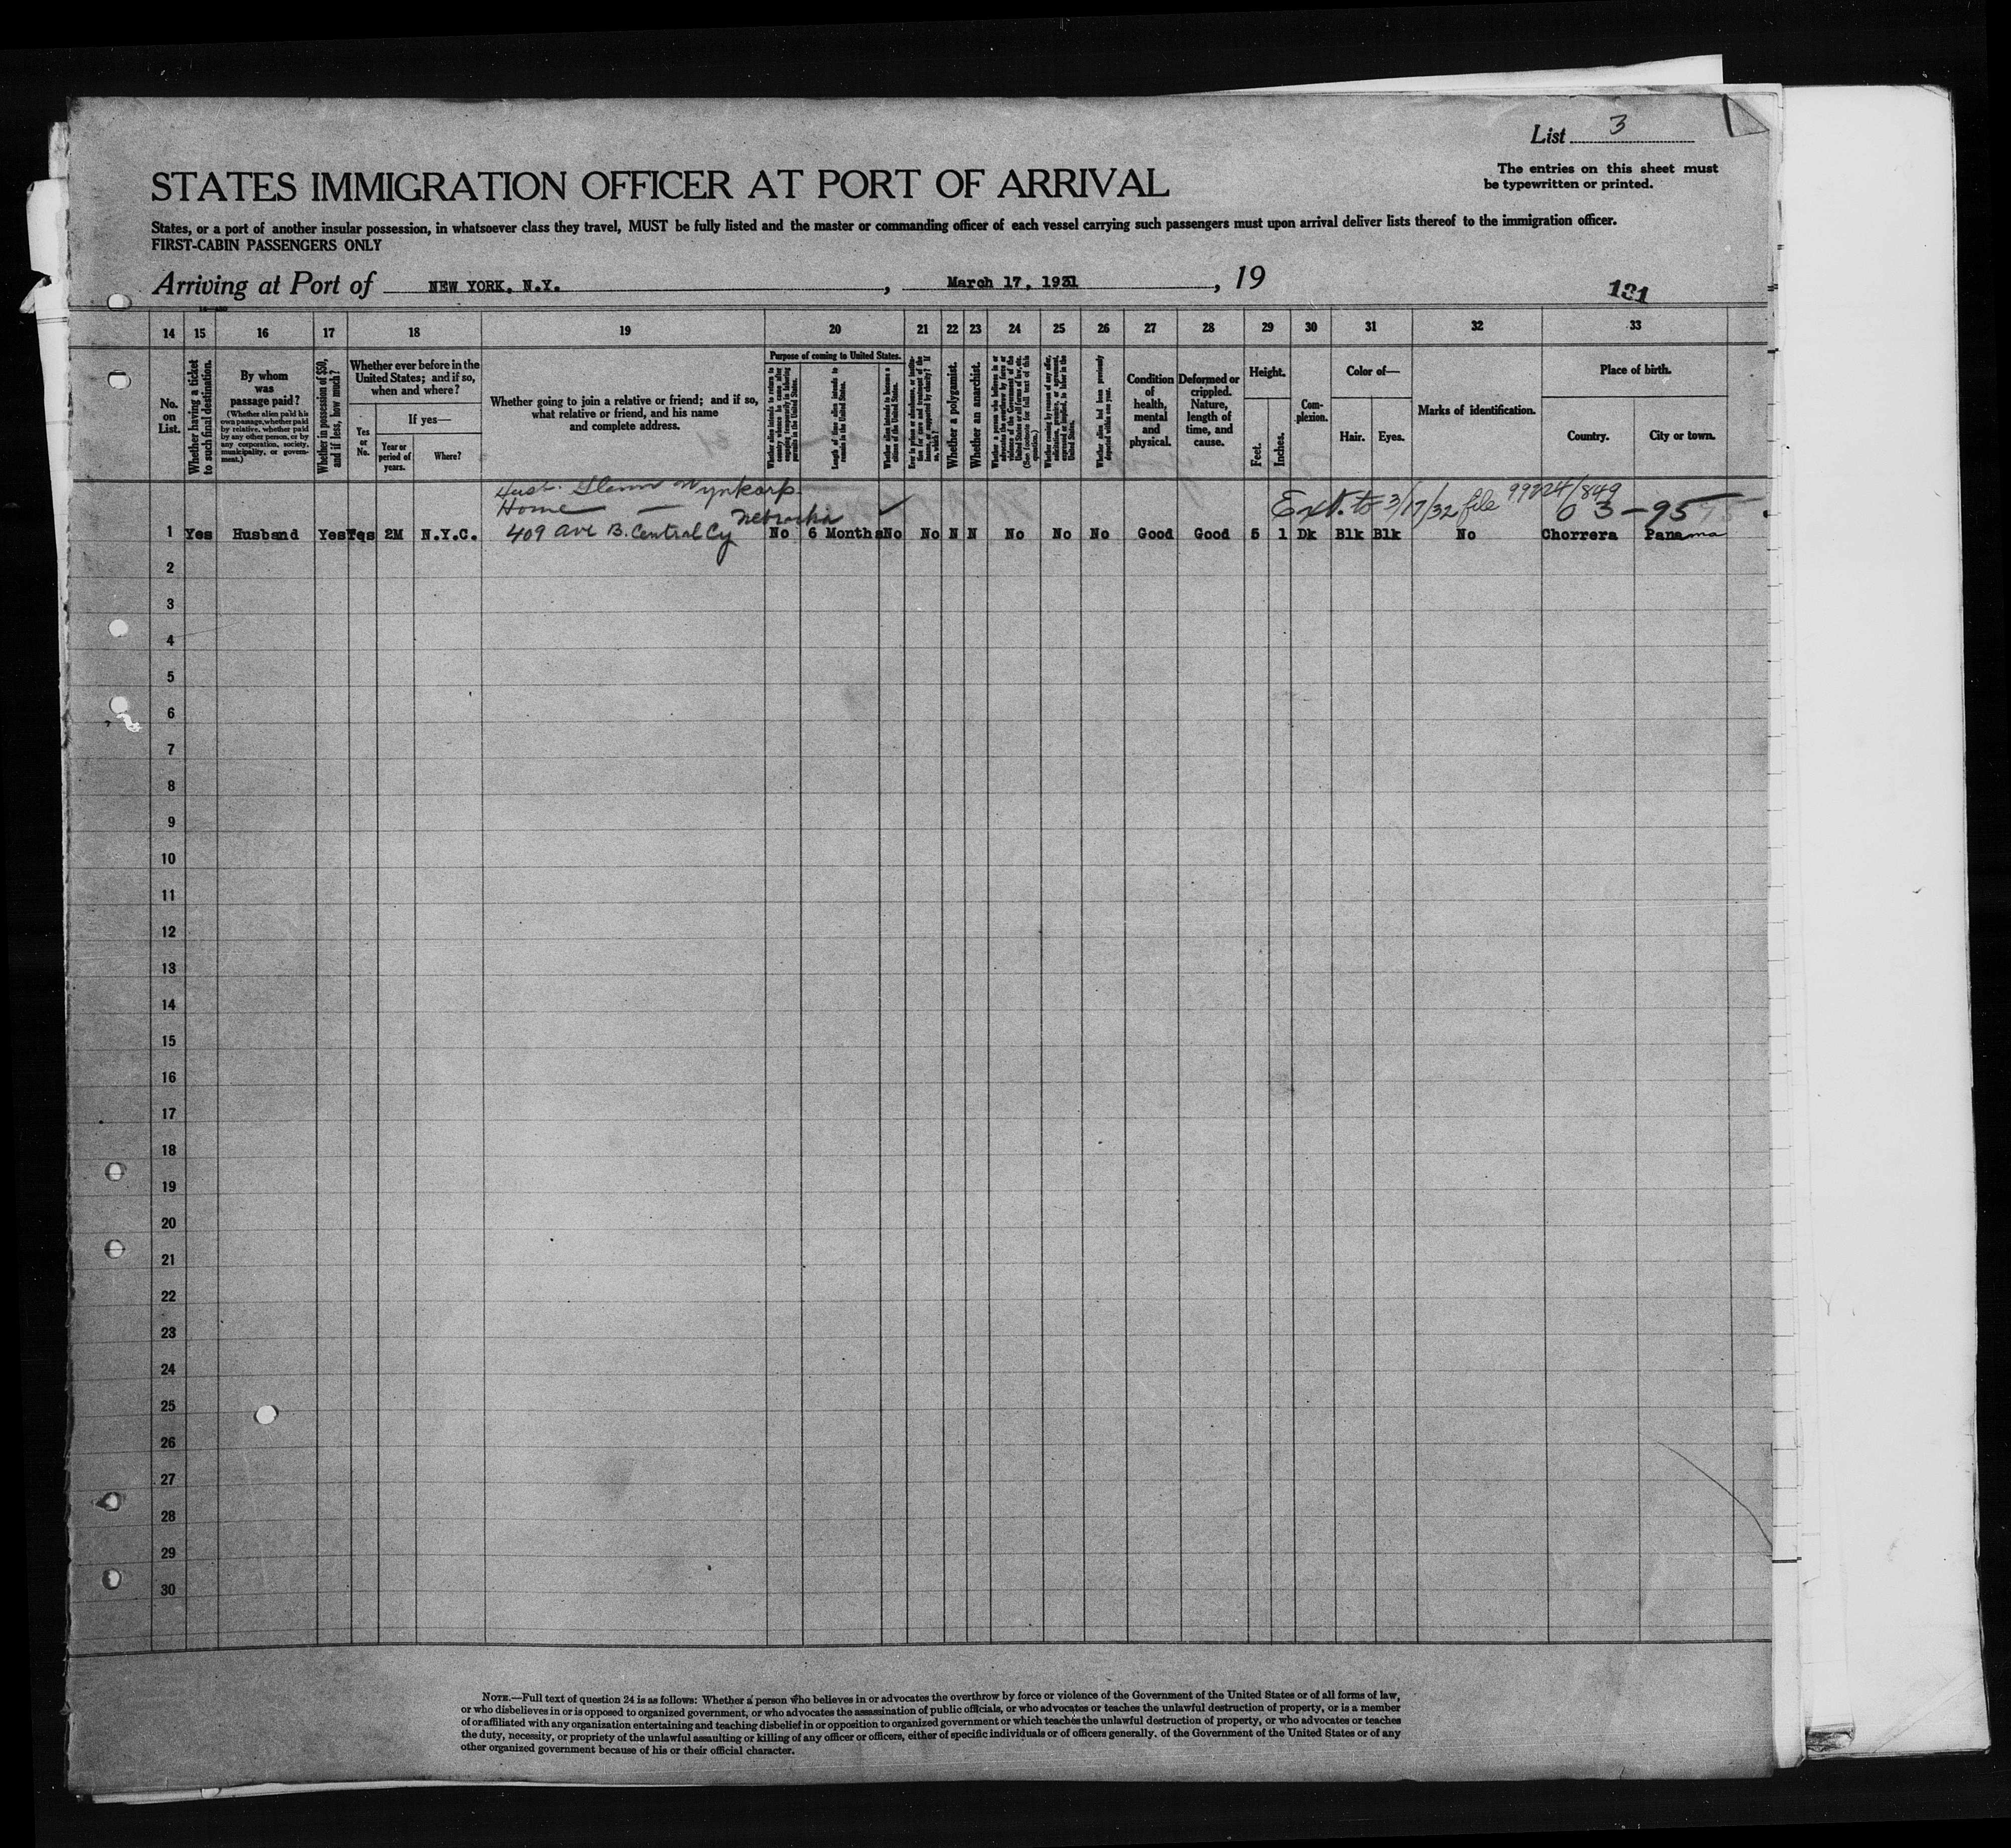 List 3
The entries on this sheet must
be typewritten or printed.
STATES IMMIGRATION OFFICER AT PORT OF ARRIVAL
States, or a port of another insular possession, in whatsoever class they travel, MUST be fully listed and the master or commanding officer of each vessel carrying such passengers must upon arrival deliver lists thereof to the immigration officer.
FIRST-CABIN PASSENGERS ONLY
Arriving at Port of NEW YORK, N.Y. , March 17, 1931 , 19
131
14 15 16 17 18 19 20 21 22 23 24 25 26 27 28 29 30 31 32 33
No.
on
List.
Whether having a ticket
to such final destination.
By whom
was
passage paid?
(Whether alien paid his
own passage, whether paid
by relative, whether paid
by any other person, or by
any corporation, society,
municipality, or govern-
ment.)
Whether in possession of $50,
and if less, how much?
Whether ever before in the
United States; and if so,
when and where?
Yes
or
No.
If yes—
Year or
period of
years.
Where?
Whether going to join a relative or friend; and if so,
what relative or friend, and his name
and complete address.
Purpose of coming to United States.
Whether alien intends to return to
country whence he came after
engaging temporarily in laboring
pursuits in the United States.
Length of time alien intends to
remain in the United States.
Whether alien intends to become a
citizen of the United States.
Ever in prison or almshouse or institu-
tion for care and treatment of the
insane, or supported by charity? If
so, which?
Whether a polygamist.
Whether an anarchist.
Whether a person who believes in or
advocates the overthrow by force or
violence of the Government of the
United States or all forms of law, etc.
(See footnote for full text of this
question.)
Whether coming by reason of any offer,
solicitation, promise, or agreement,
expressed or implied, to labor in the
United States.
Whether alien had been previously
deported within one year.
Condition
of
health,
mental
and
physical.
Deformed or
crippled.
Nature,
length of
time, and
cause.
Height.
Feet.
Inches.
Com-
plexion.
Color of—
Hair.
Eyes.
Marks of identification.
Place of birth.
Country.
City or town.
Husb. Glenn Wynkoop
Home —
Nebraska
Ext. to 3/17/32 file 99224/849
03-95
1 Yes Husband Yes Yes 2M N.Y.C. 409 Ave B. Central Cy No 6 Months No No N N No No No Good Good 5 1 Dk Blk Blk No Chorrera Panama
2
3
4
5
6
7
8
9
10
11
12
13
14
15
16
17
18
19
20
21
22
23
24
25
26
27
28
29
30
NOTE.—Full text of question 24 is as follows: Whether a person who believes in or advocates the overthrow by force or violence of the Government of the United States or of all forms of law,
or who disbelieves in or is opposed to organized government, or who advocates the assassination of public officials, or who advocates or teaches the unlawful destruction of property, or is a member
of or affiliated with any organization entertaining and teaching disbelief in or opposition to organized government or which teaches the unlawful destruction of property, or who advocates or teaches
the duty, necessity, or propriety of the unlawful assaulting or killing of any officer or officers, either of specific individuals or of officers generally, of the Government of the United States or of any
other organized government because of his or their official character.